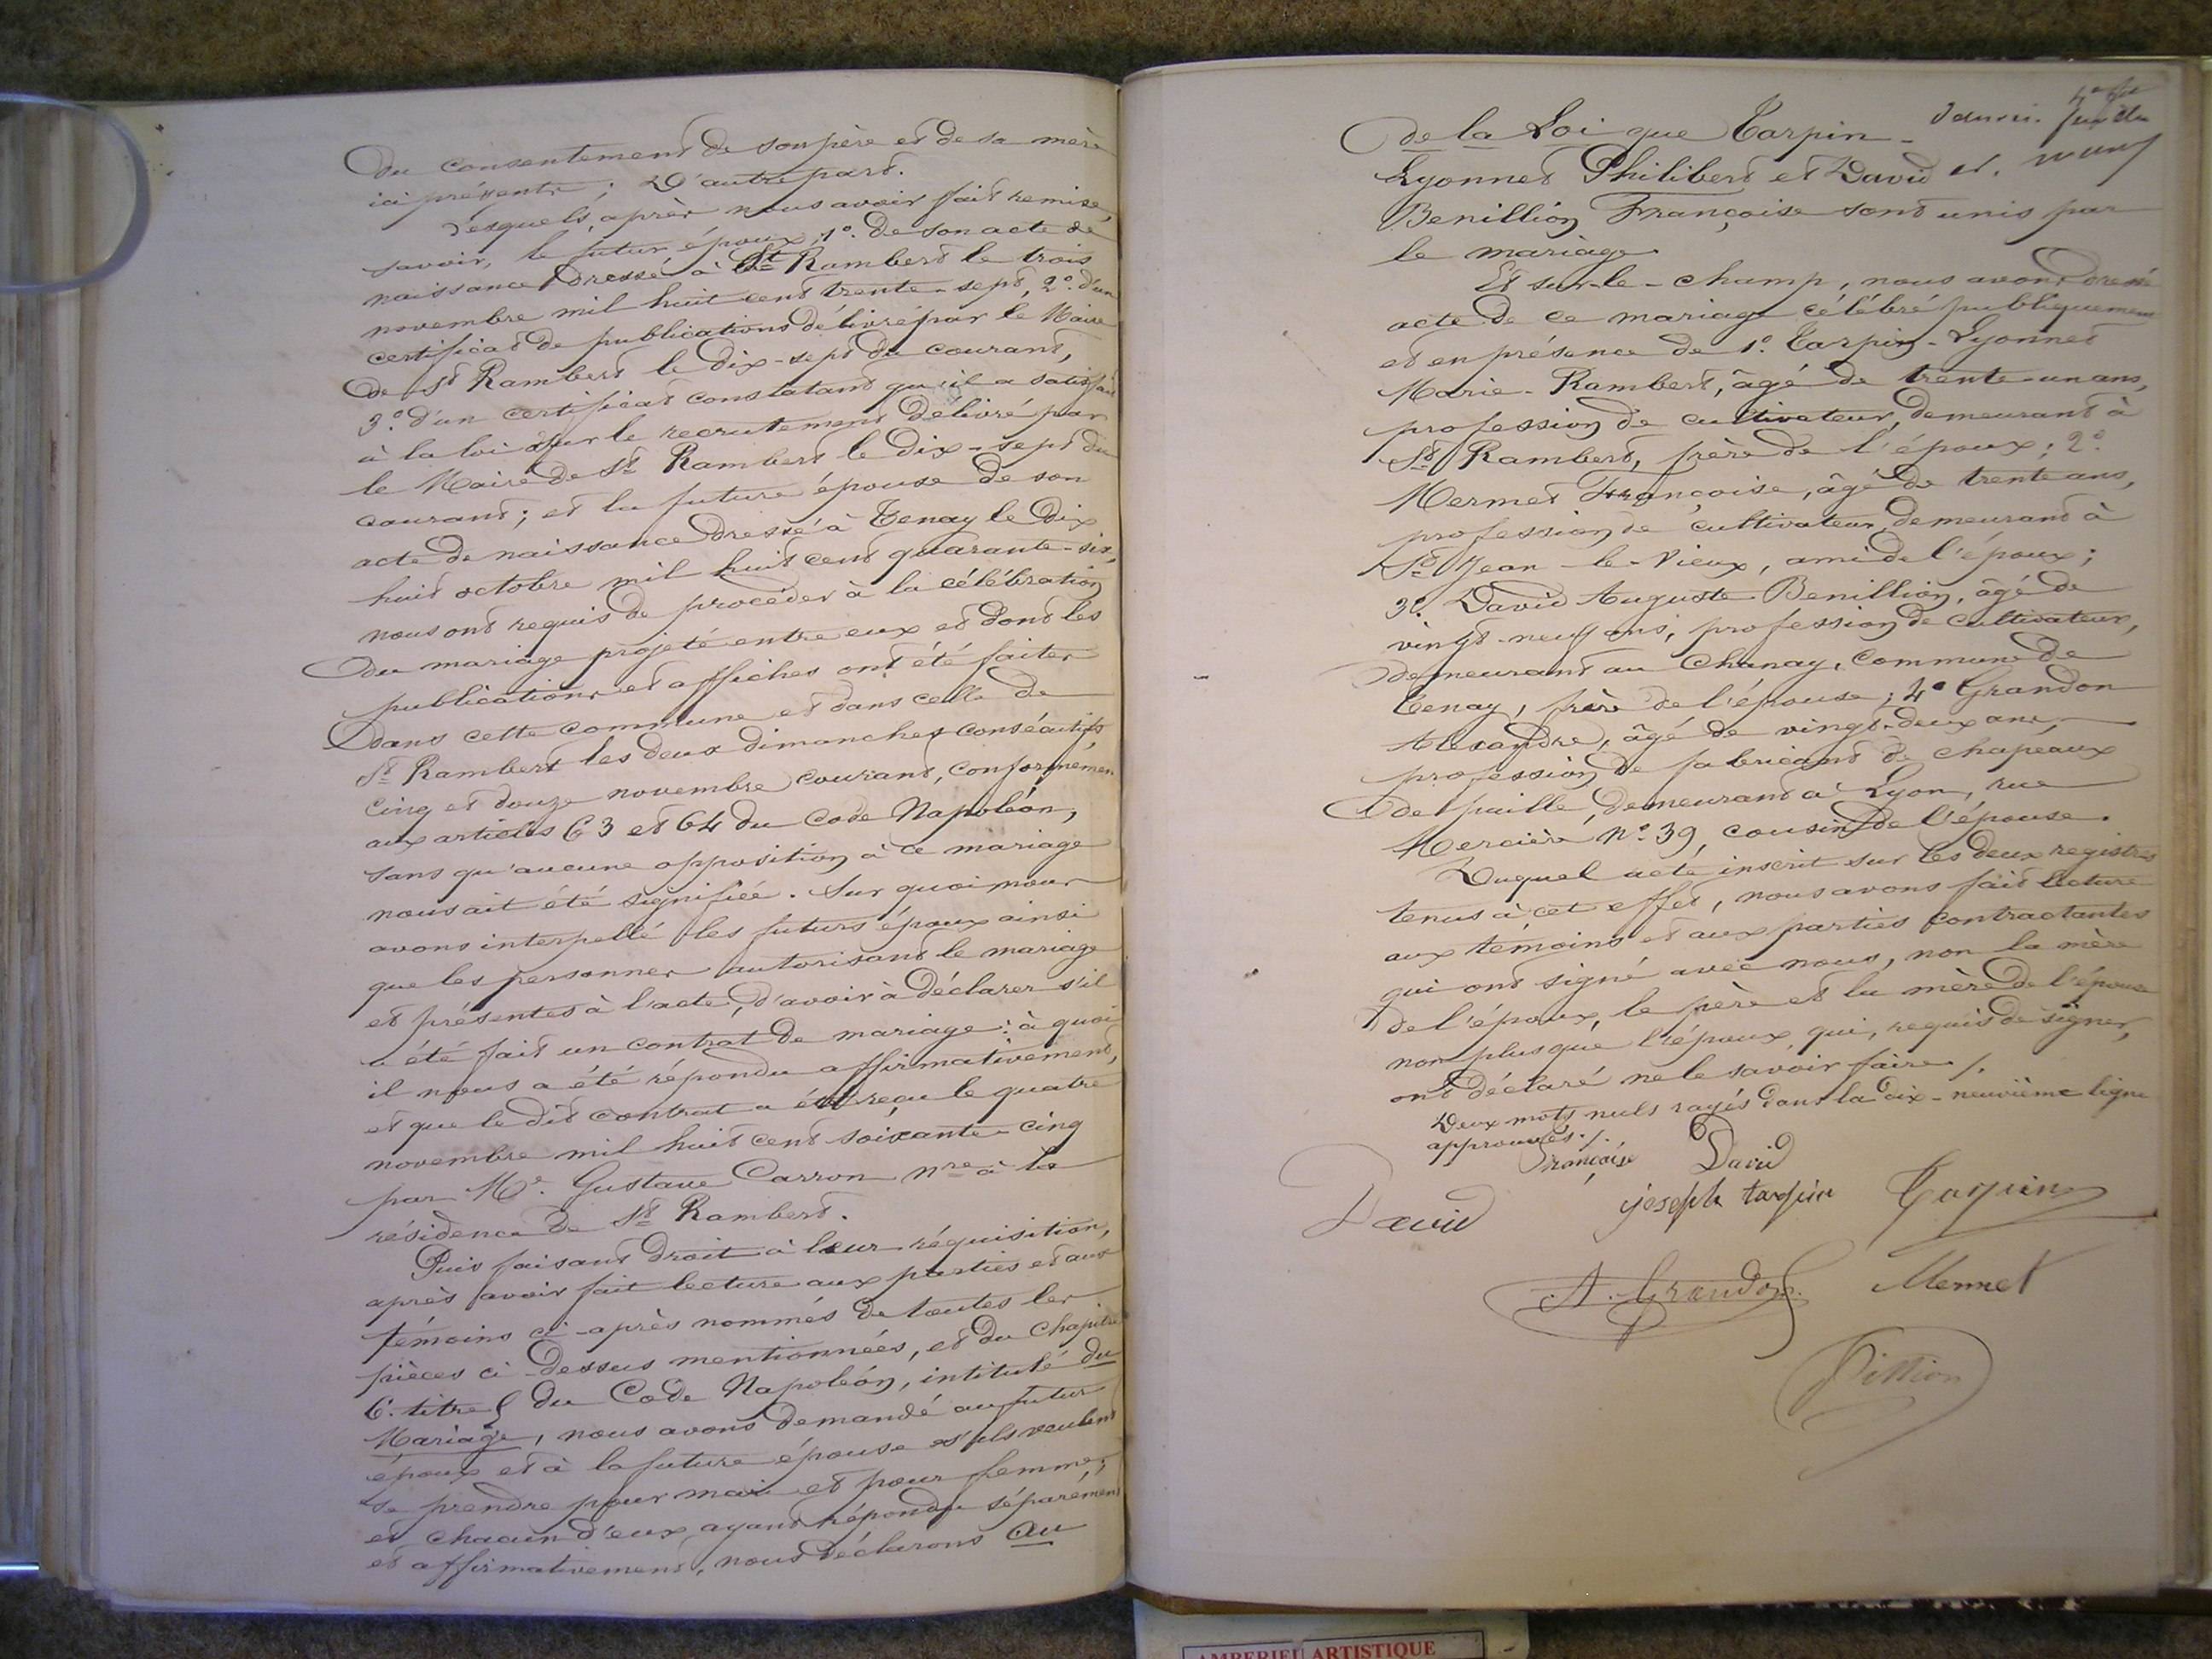 du consentement de son père et de sa mère
ici présents ; D'autre part.
Lesquels, après nous avoir fait remise,
savoir, le futur époux, 1º. de son acte de
naissance dressé à St Rambert le trois
novembre mil huit cent trente-sept, 2º. d'un
certificat de publications délivré par le Maire
de St Rambert le dix-sept du courant,
3º. d'un certificat constatant qu'il a satisfait
à la loi sur le recrutement délivré par
le Maire de St Rambert le dix-sept du
courant ; et la future épouse de son
acte de naissance dressé à Tenay le dix
huit octobre mil huit cent quarante-six,
nous ont requis de procéder à la célébration
du mariage projeté entre eux et dont les
publications et affiches ont été faites
dans cette commune et dans celle de
St Rambert les deux dimanches consécutifs
cinq et douze novembre courant, conformément
aux articles 63 et 64 du Code Napoléon,
sans qu'aucune opposition à ce mariage
nous ait été signifiée. Sur quoi nous
avons interpellé les futurs époux ainsi
que les personnes autorisant le mariage
et présentes à l'acte, d'avoir à déclarer s'il
a été fait un contrat de mariage : à quoi
il nous a été répondu affirmativement,
et que le dit contrat a été reçu le quatre
novembre mil huit cent soixante-cinq
par Me. Gustave Carron nre à la
résidence de St Rambert.
Puis faisant droit à leur réquisition,
après avoir fait lecture aux parties et aux
témoins ci-après nommés de toutes les
pièces ci-dessus mentionnées, et du chapitre
6. titre 5 du Code Napoléon, intitulé du
Mariage, nous avons demandé au futur
époux et à la future épouse s'ils veulent
se prendre pour mari et pour femme ;
et chacun d'eux ayant répondu séparément
et affirmativement, nous déclarons au
de la Loi que Tarpin-
Lyonnet Philibert et David
Benillion Françoise sont unis par
le mariage
Et sur-le-champ, nous avons dressé
acte de ce mariage célébré publiquement
et en présence de 1º. Tarpin-Lyonnet
Marie-Rambert, âgé de trente-un ans,
profession de cultivateur, demeurant à
St Rambert, frère de l'époux ; 2º.
Mermet Françoise, âgé de trente ans,
profession de cultivateur, demeurant à
St Jean-le-Vieux, ami de l'époux ;
3º. David Auguste Benillion, âgé de
vingt-neuf ans, profession de cultivateur,
demeurant au Chanay, commune de
Tenay, frère de l'épouse ; 4º Grandon
Alexandre, âgé de vingt-deux ans,
profession de fabricant de chapeaux
de paille, demeurant à Lyon, rue
Mercière Nº. 39, cousin de l'épouse.
Duquel acte inscrit sur les deux registres
tenus à cet effet, nous avons fait lecture
aux témoins et aux parties contractantes
qui ont signé avec nous, non la mère
de l'époux, le père et la mère de l'épouse
non plus que l'époux qui, requis de signer,
ont déclaré ne le savoir faire /.
Deux mots nuls rayés dans la dix-neuvième ligne
approuvés. /.
Françoise David
David joseph tarpin Tarpin
A. Grandon Mermet
AMBERIEU ARTISTIQUE